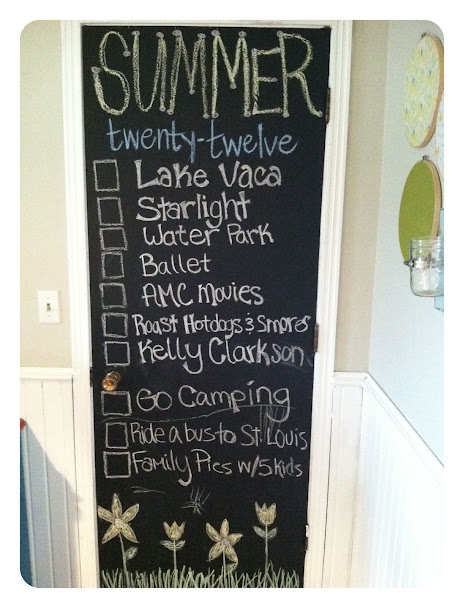 SUMMER
twenty-twelve
Lake Vaca
Starlight
Water Park
Ballet
AMC Movies
Roast Hotdogs & Smores
Kelly Clarkson
Go Camping
Ride a bus to St. Louis
Family Pics w/5 kids